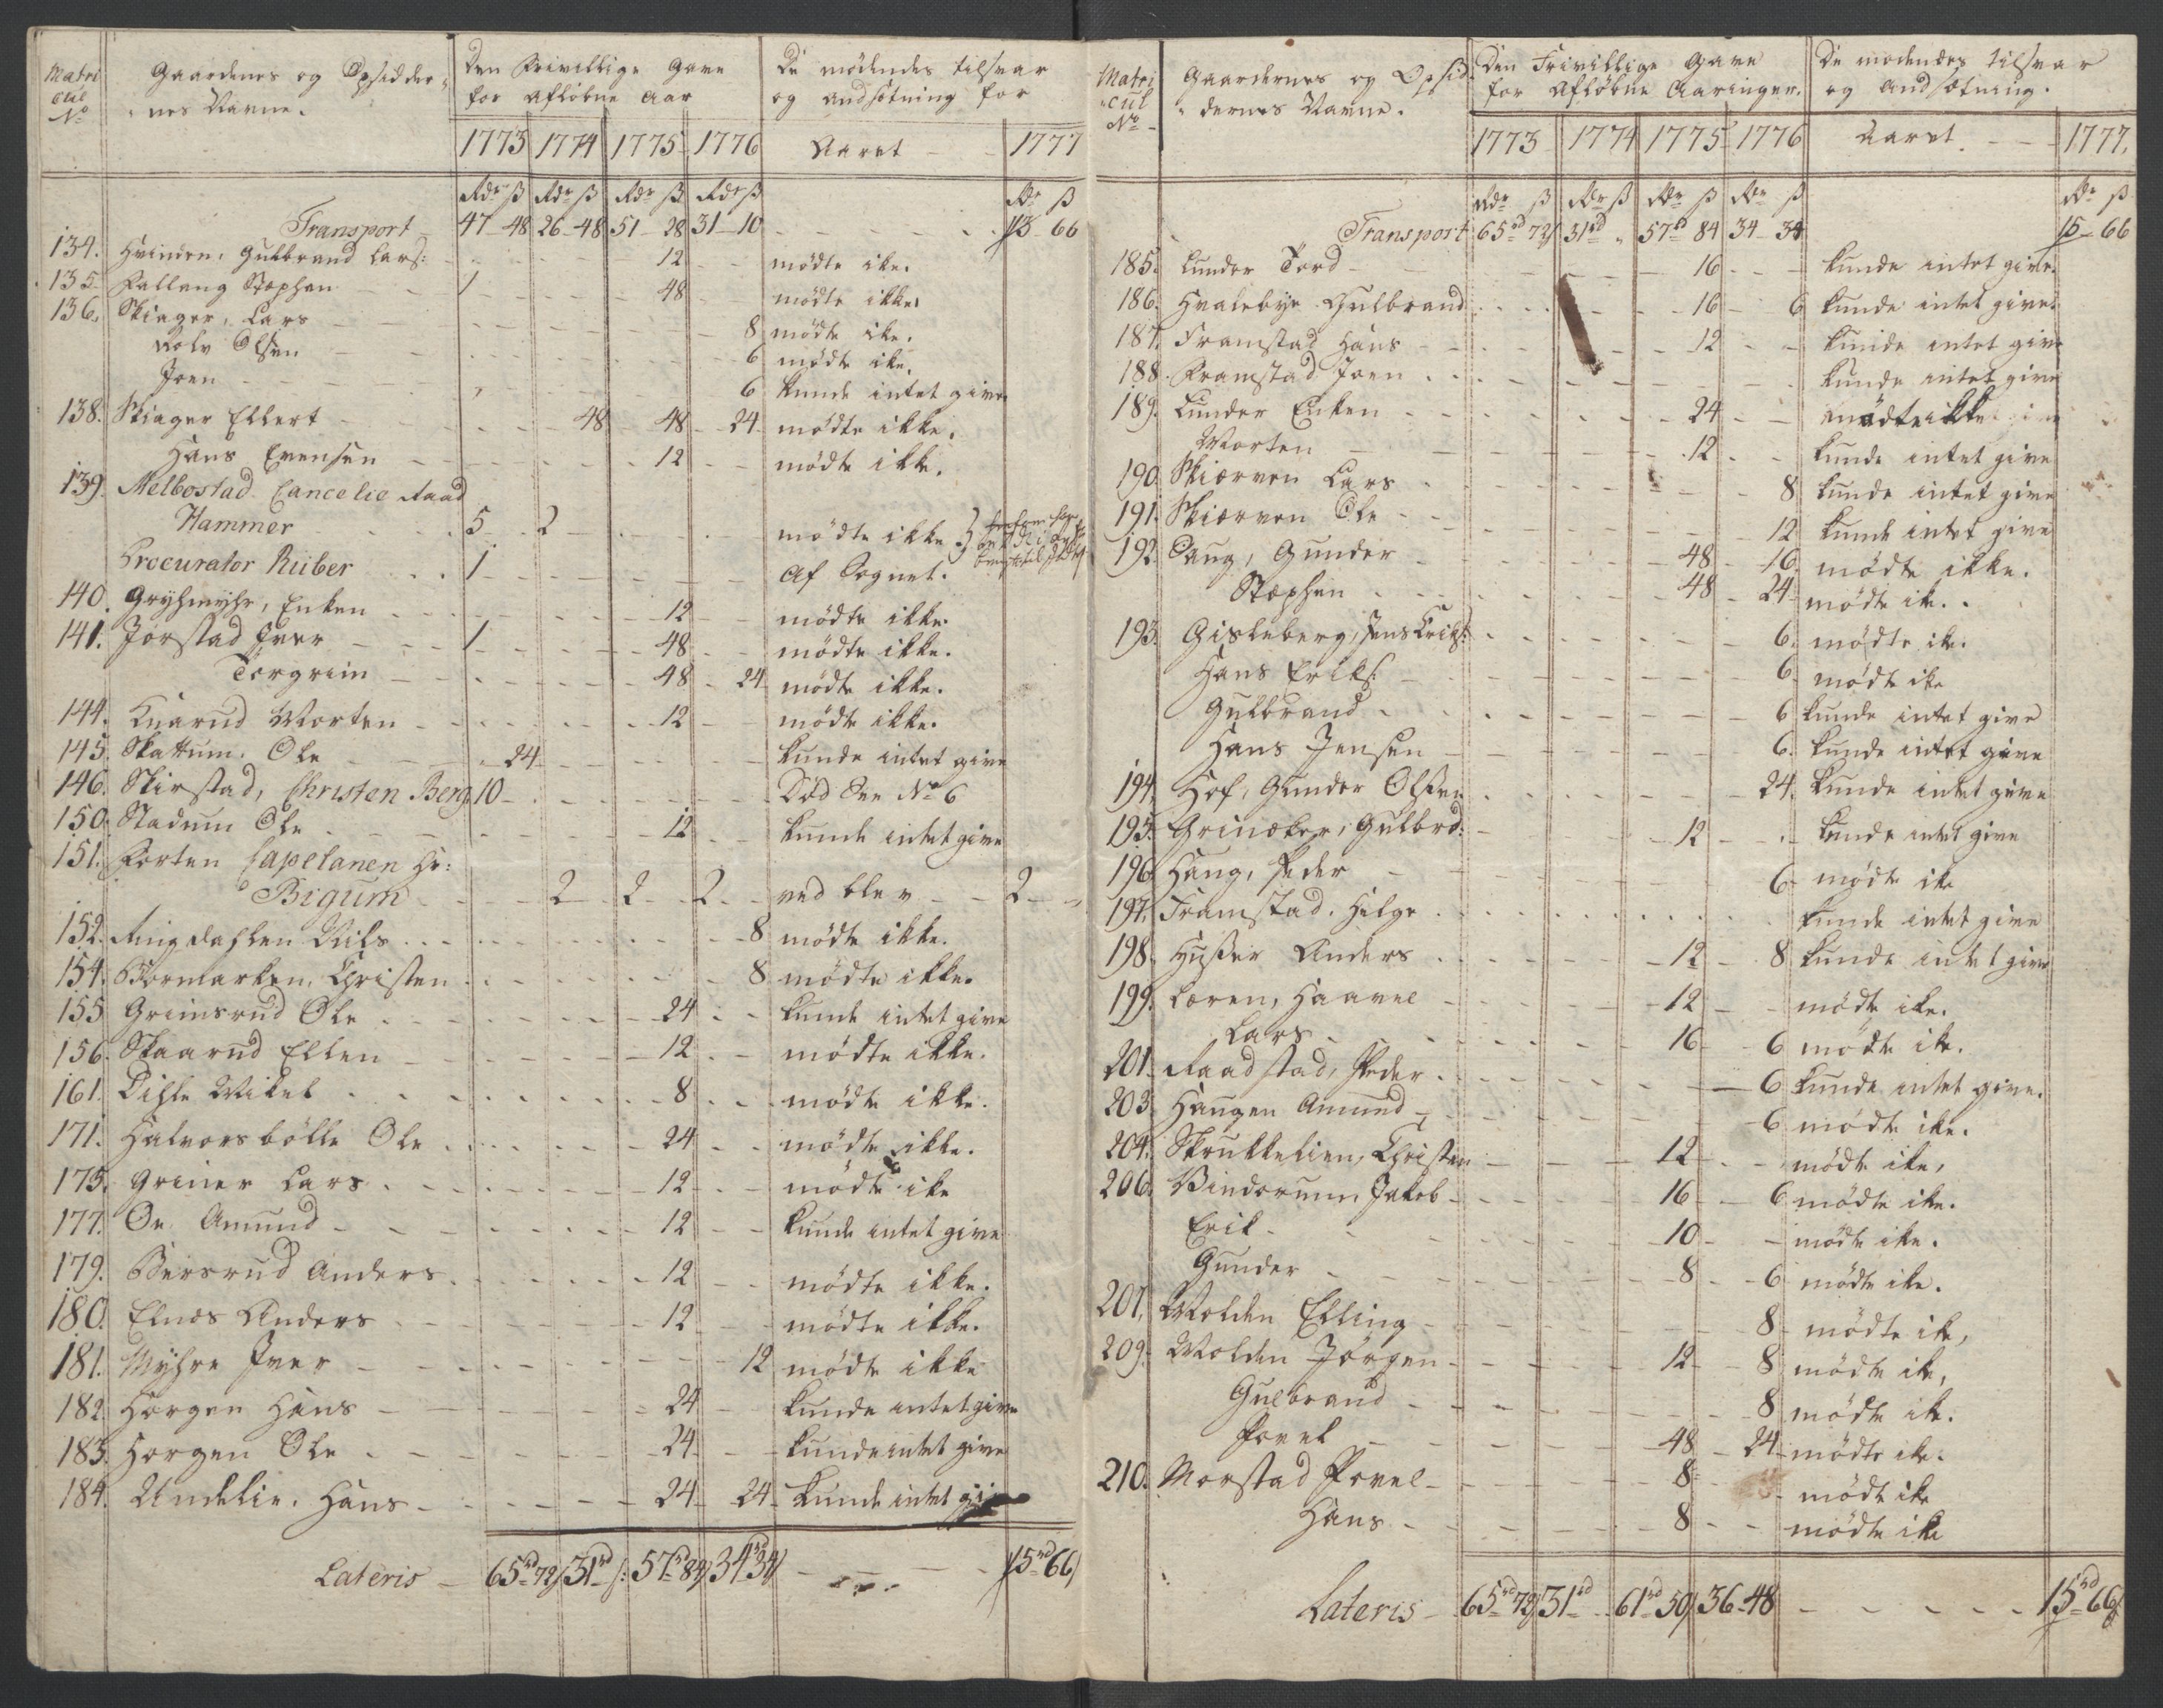 Matri Gaardenes og Opsidder- Den Frivillige Gave De mødendes tilsvar
cul - nes Navne. for afløbne Aar og Ansætning for
No
1773 1774 1775 1776 Aaret - - 1777
Rdr ß Rdr ß Rdr ß Rdr ß Rdr ß
Transport 47-48 26-48 51-28 31-10 - - - 13-66
134. Hvinden, Gulbrand Lars: 12 mødte ike.
135. Falleng Stephen 1 48 mødte ikke.
136. Skiager, Lars 8 mødte ike.
Rolv Olsen 6 mødte ike.
Joen 6 kunde intet give
138. Skiager Ellert 48 48 24 mødte ikke.
Hans Evensen 12 mødte ikke.
139. Melbostad Cancelie Raad
Hammer 5 2 mødte ikke
Procurator Rüber 1 Af Sognet.
140. Gryhmyhr, Enken 12 mødte ikke.
141. Jorstad Iver 1 48 mødte ikke.
Torgrim 48 24 mødte ikke.
144. Knarud Morten 12 mødte ikke.
145. Skattum. Ole 24 kunde intet give
146. Skirstad, Christen Berg 10 Død See No 6
150. Stadum Ole 12 kunde intet give
151. Forten Capelanen Hr:
Bigum 2 2 2 ved blev 2
152. Ringdahlen Nils 8 mødte ikke.
154. Bormarken, Christen 8 mødte ikke.
155 Grimsrud Ole 24 kunde intet give
156. Skaarud Ellen 12 mødte ikke.
161. Dihle Mikel 8 mødte ikke.
171. Halvorsbølle Ole 24 mødte ikke.
175. Griner Lars 12 mødte ike
177. Øe Amund 12 kunde intet give
179. Bersrud Anders 12 mødte ikke.
180. Elnæs Anders 12 mødte ikke.
181. Myhre Iver 12 mødte ikke
182. Horgen Hans 24 kunde intet give
183. Horgen Ole 24 kunde intet give
184. Undelie. Hans 24 24 kunde intet give
Lateris 65rd72ß 31rd ß: 57rd84ß 34rd34ß - - - 15rd66ß
Matri Gaardernes og Opsid- Den Frivillige Gave De mødendes tilsvar
-cul - dernes Navne. for afløbne Aaringer. og Ansætning.
No
1773 1774 1775 1776 Aaret - - 1777.
Rdr ß Rdr ß Rdr ß Rdr ß Rdr ß
Transport 65rd 72ß 31rd " 57rd 84 34-34 15-66
185. Lunder Tord 16 kunde intet give.
186. Hvalebye Gulbrand 16 6 kunde intet give.
187. Framstad Hans 12 kunde intet give
188. Framstad Joen kunde intet give
189. Lunder Enken 24 mødte ikke
Morten 12 kunde intet give
190 Skiærven Lars 8 kunde intet give
191. Skiærven Ole 12 kunde intet give
192. Houg, Gunder 48 16 mødte ikke.
Stephen 48 24 mødte ike.
193. Gisleberg, Jens Eriks: 6. mødte ike.
Hans Eriks: 6. mødte ike
Gulbrand 6 kunde intet give
Hans Jensen 6. kunde intet give
194. Hof, Gunder Olsen 24. kunde intet give
195. Grinaker, Gulbrd: 12 kunde intet give
196 Haug, Peder 6. mødte ike
197. Framstad. Helge kunde intet give
198. Husser Anders 12 8 kunde intet give
199. Loren, Haavel 12 mødte ike.
Lars 16 6 mødte ike.
201. Raadstad, Peder 6 kunde intet give.
203. Haugen Amund 6 mødte ike.
204. Skrukkelien, Christen 12 mødte ike,
206. Bindorum, Jakob 16 6 mødte ike.
Erik 10 mødte ike.
Gunder 8 6 mødte ike.
207. Molden Elling 8 mødte ike,
209. Molden Jørgen 12 8 mødte ike,
Gulbrand 8 mødte ike.
Povel 48 24 mødte ike.
210. Morstad Povel 8 mødte ike
Hans 8 mødte ike
Lateris 65rd72ß 31rd 61rd50ß 36-48 - - - 15rd66ß